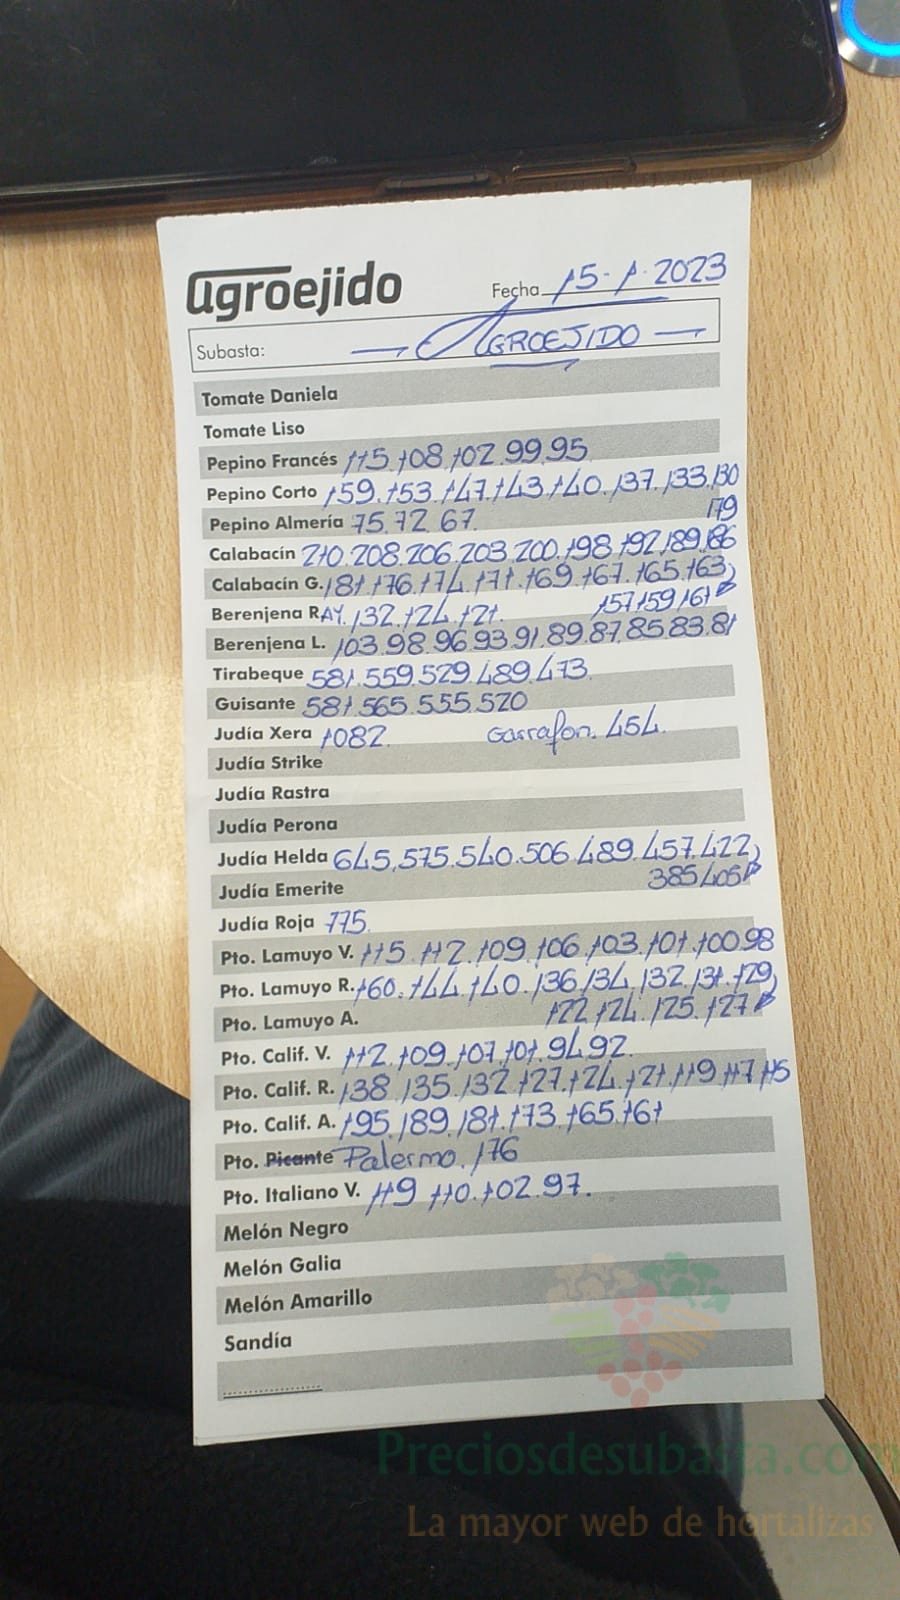 agroejido
Fecha 15-1-2023
Subasta: AGROEJIDO
Tomate Daniela
Tomate Liso
Pepino Francés 115.108.102.99.95
Pepino Corto 159.153.147.143.140.137.133.130
Pepino Almería 75.72.67. 179
Calabacín 210.208.206.203.200.198.192.189.186
Calabacín G. 181.176.174.171.169.167.165.163
Berenjena RAY. 132.124.121. 157 159 161
Berenjena L. 103.98.96.93.91.89.87.85.83.81
Tirabeque 581.559.529.489.473.
Guisante 581.565.555.520
Judía Xera 1082. Garrafon. 454.
Judía Strike
Judía Rastra
Judía Perona
Judía Helda 645,575.540.506.489.457.422
Judía Emerite 385.405
Judía Roja 775.
Pto. Lamuyo V. 115.112.109.106.103.101.100.98
Pto. Lamuyo R. 160.144.140.136.134.132.131.129
Pto. Lamuyo A. 122.124.125.127
Pto. Calif. V. 112.109.107.101.94.92.
Pto. Calif. R. 138.135.132.127.124.121.119 117 115
Pto. Calif. A. 195.189.181.173.165.161
Pto. Picante Palermo. 176
Pto. Italiano V. 119 110.102.97.
Melón Negro
Melón Galia
Melón Amarillo
Sandía
Preciosdesubasta.com
La mayor web de hortalizas